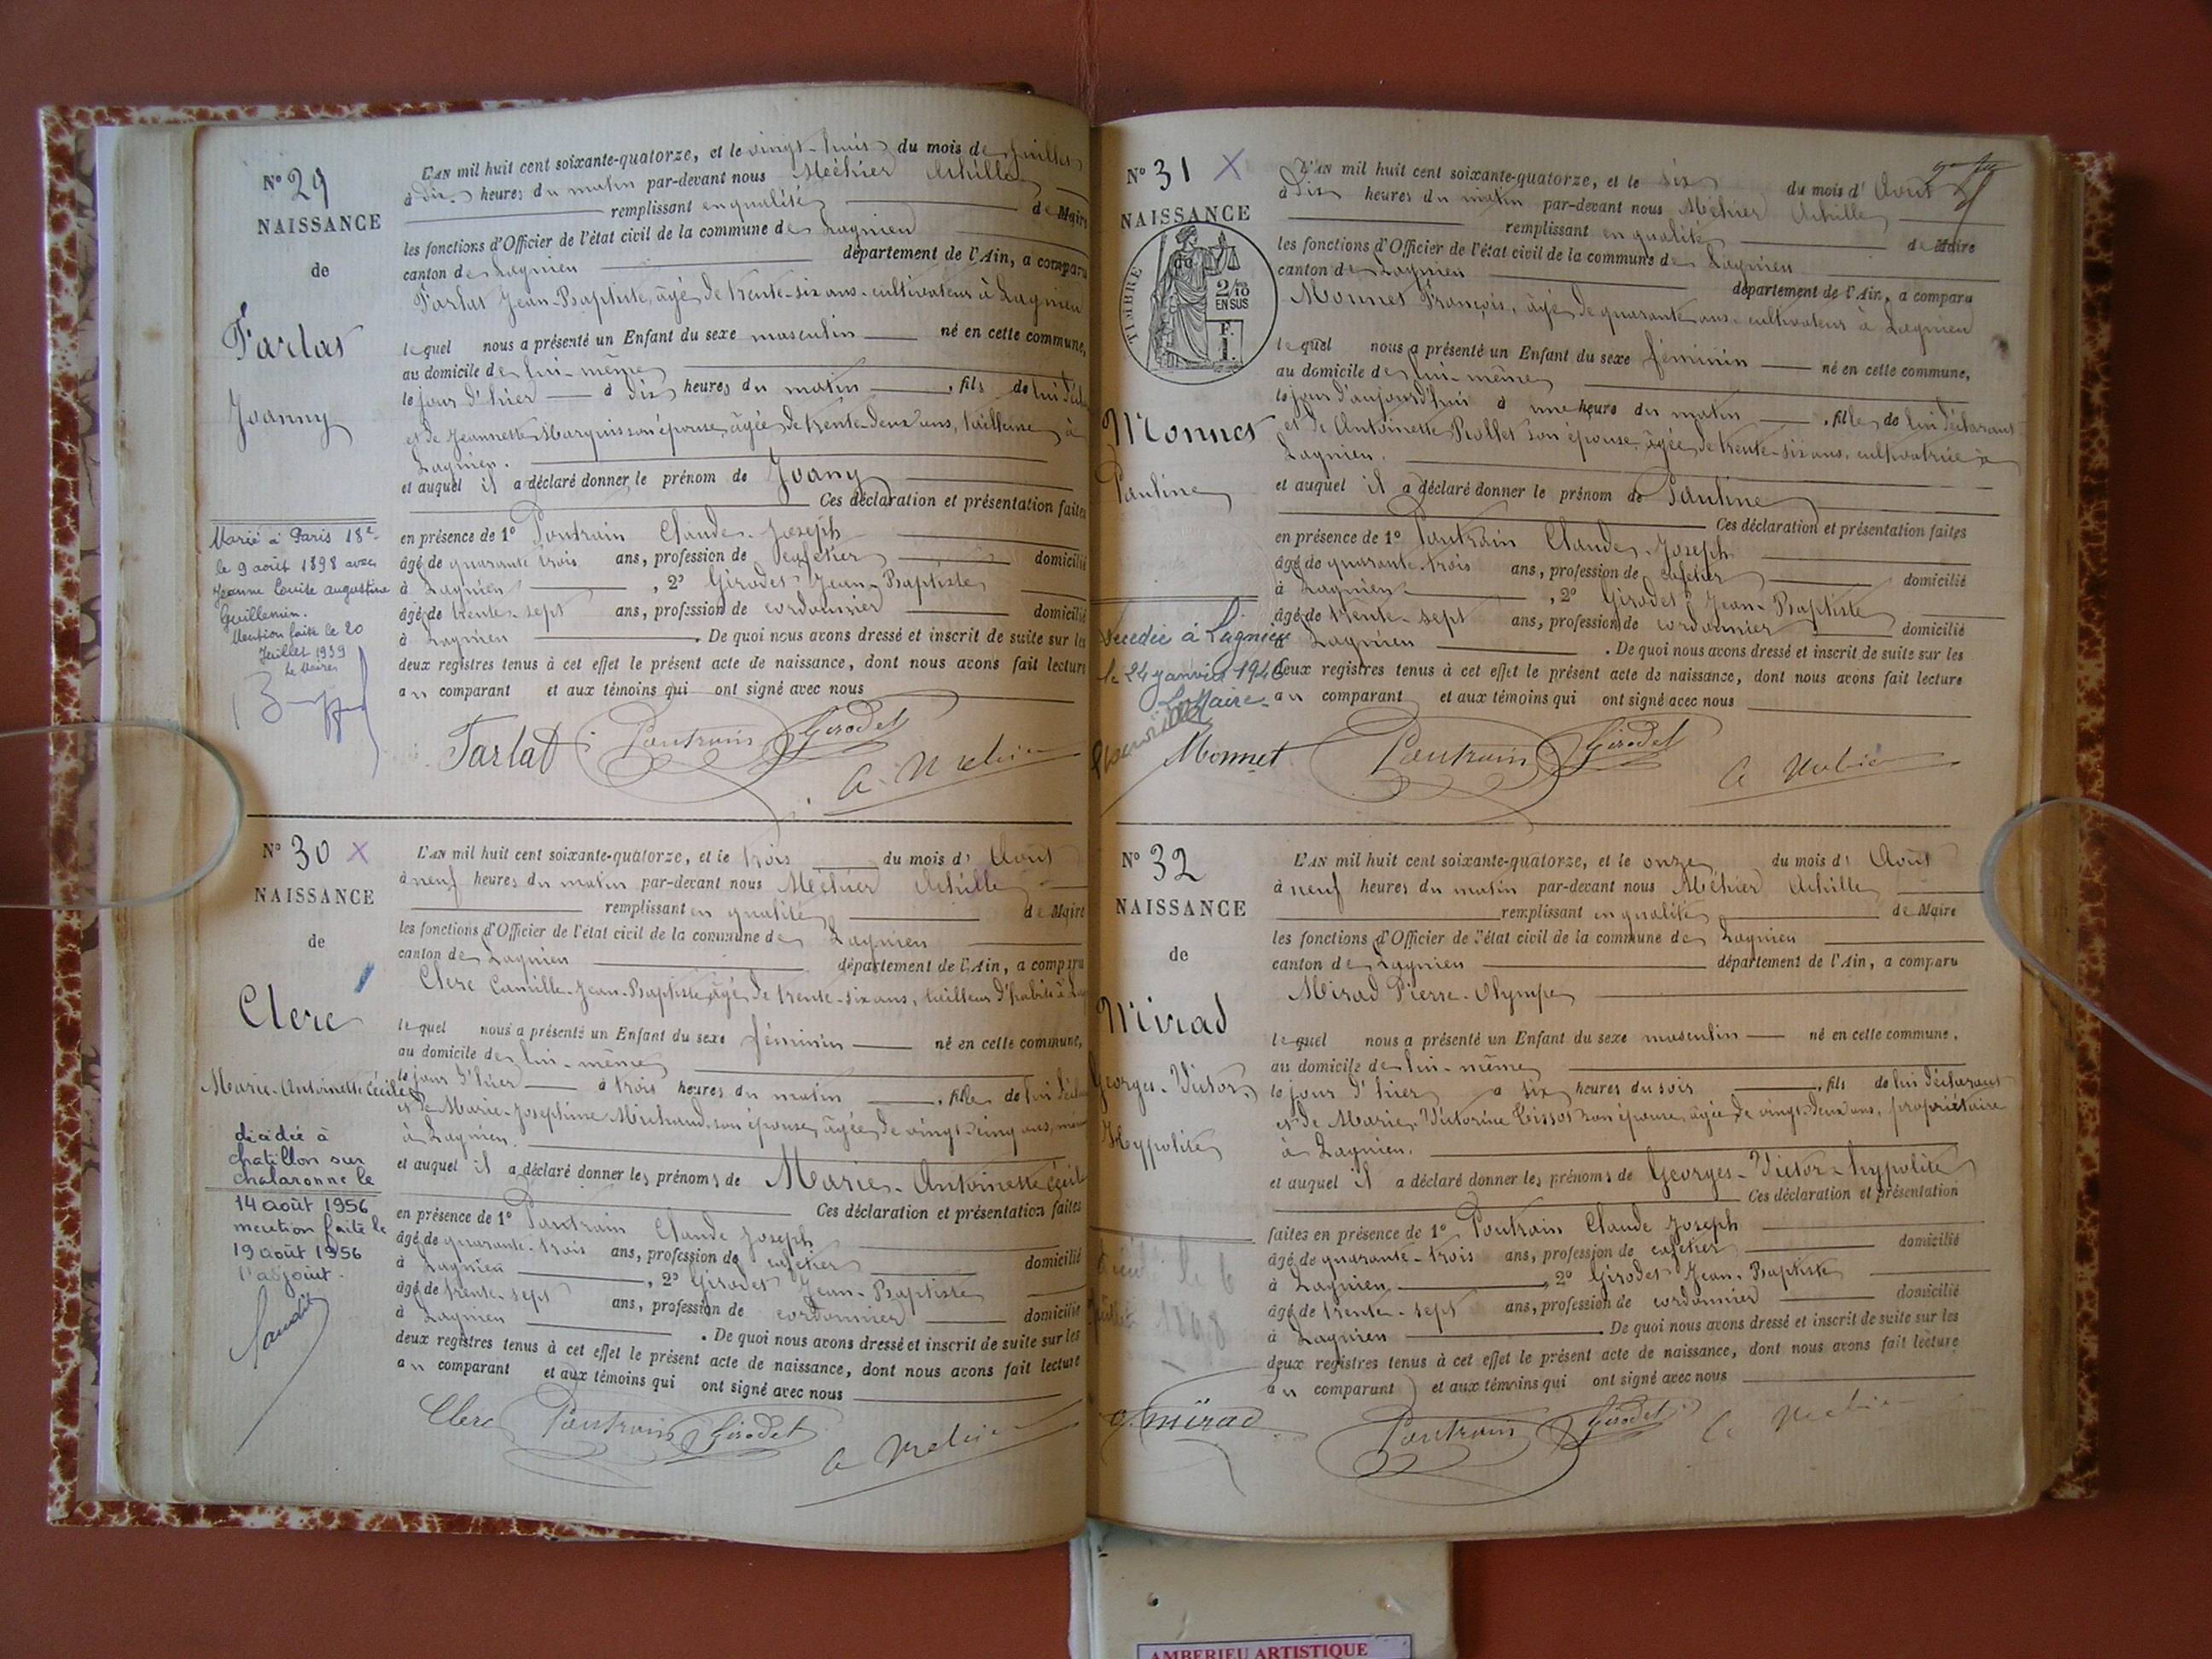 N° 29
NAISSANCE
de
Tarlat
Joanny
Marié à Paris 18e
le 9 août 1898 avec
Jeanne Louise Augustine
Guillemin.
Mention faite le 20
Juillet 1939
Le Maire
L'AN mil huit cent soixante-quatorze, et le vingt-huit du mois de Juillet
à dix heures du matin par-devant nous Méhier Achille
remplissant en qualité de Maire
les fonctions d'Officier de l'état civil de la commune de Lagnieu
canton de Lagnieu département de l'Ain, a comparu
Tarlat Jean-Baptiste, âgé de trente-six ans, cultivateur à Lagnieu
lequel nous a présenté un Enfant du sexe masculin né en cette commune,
au domicile de lui-même
le jour d'hier à dix heures du matin, fils de lui décla
et de Jeannette Marquis son épouse, âgée de trente-deux ans, tailleuse à
Lagnieu.
et auquel il a déclaré donner le prénom de Joany
Ces déclaration et présentation faites
en présence de 1° Poutrain Claude-Joseph
âgé de quarante trois ans, profession de cafetier domicilié
à Lagnieu, 2° Girodet Jean-Baptiste
âgé de trente-sept ans, profession de cordonnier domicilié
à Lagnieu. De quoi nous avons dressé et inscrit de suite sur les
deux registres tenus à cet effet le présent acte de naissance, dont nous avons fait lecture
au comparant et aux témoins qui ont signé avec nous
Tarlat Poutrain Girodet A. Méhier
N° 30 X
NAISSANCE
de
Clerc
Marie-Antoinette Cécile
décédée à
chatillon sur
chalaronne le
14 août 1956
mention faite le
19 août 1956
l'adjoint.
L'AN mil huit cent soixante-quatorze, et le trois du mois d'Août
à neuf heures du matin par-devant nous Méhier Achille
remplissant en qualité de Maire
les fonctions d'Officier de l'état civil de la commune de Lagnieu
canton de Lagnieu département de l'Ain, a comparu
Clerc Camille-Jean-Baptiste âgé de trente-six ans, tailleur d'habits à Lag
lequel nous a présenté un Enfant du sexe féminin né en cette commune,
au domicile de lui-même
le jour d'hier à trois heures du matin, fille de lui décla
et de Marie-Joséphine Michaud son épouse, âgée de vingt-cinq ans,
à Lagnieu.
et auquel il a déclaré donner les prénoms de Marie-Antoinette Cécile
Ces déclaration et présentation faites
en présence de 1° Poutrain Claude Joseph
âgé de quarante-trois ans, profession de cafetier domicilié
à Lagnieu, 2° Girodet Jean-Baptiste
âgé de trente-sept ans, profession de cordonnier domicilié
à Lagnieu. De quoi nous avons dressé et inscrit de suite sur les
deux registres tenus à cet effet le présent acte de naissance, dont nous avons fait lecture
au comparant et aux témoins qui ont signé avec nous
Clerc Poutrain Girodet A Méhier
N° 31 X
NAISSANCE
de
TIMBRE
2/10
EN SUS
F.
1.
Monnet
Pauline
Décédée à Lagnieu
le 24 janvier 1946
Le Maire
L'AN mil huit cent soixante-quatorze, et le six du mois d'Août
à dix heures du matin par-devant nous Méhier Achille
remplissant en qualité de Maire
les fonctions d'Officier de l'état civil de la commune de Lagnieu
canton de Lagnieu département de l'Ain, a comparu
Monnet François, âgé de quarante ans, cultivateur à Lagnieu
lequel nous a présenté un Enfant du sexe féminin né en cette commune,
au domicile de lui-même
le jour d'aujourd'hui à une heure du matin, fille de lui déclarant
et de Antoinette Rollet son épouse, âgée de trente-six ans, cultivatrice à
Lagnieu.
et auquel il a déclaré donner le prénom de Pauline
Ces déclaration et présentation faites
en présence de 1° Poutrain Claude-Joseph
âgé de quarante-trois ans, profession de cafetier domicilié
à Lagnieu, 2° Girodet Jean-Baptiste
âgé de trente-sept ans, profession de cordonnier domicilié
à Lagnieu. De quoi nous avons dressé et inscrit de suite sur les
deux registres tenus à cet effet le présent acte de naissance, dont nous avons fait lecture
au comparant et aux témoins qui ont signé avec nous
Monnet Poutrain Girodet A Méhier
N° 32
NAISSANCE
de
Mirad
Georges-Victor
Hypolite
L'AN mil huit cent soixante-quatorze, et le onze du mois d'Août
à neuf heures du matin par-devant nous Méhier Achille
remplissant en qualité de Maire
les fonctions d'Officier de l'état civil de la commune de Lagnieu
canton de Lagnieu département de l'Ain, a comparu
Mirad Pierre-Olympe
lequel nous a présenté un Enfant du sexe masculin né en cette commune.
au domicile de lui-même
le jour d'hier à six heures du soir, fils de lui déclarant
et de Marie-Victorine Tissot son épouse, âgée de vingt-deux ans, propriétaire
à Lagnieu.
et auquel il a déclaré donner les prénoms de Georges-Victor-hypolite
Ces déclaration et présentation
faites en présence de 1° Poutrain Claude Joseph
âgé de quarante-trois ans, profession de cafetier domicilié
à Lagnieu, 2° Girodet Jean-Baptiste
âgé de trente-sept ans, profession de cordonnier domicilié
à Lagnieu. De quoi nous avons dressé et inscrit de suite sur les
deux registres tenus à cet effet le présent acte de naissance, dont nous avons fait lecture
au comparant et aux témoins qui ont signé avec nous
O. Mirad Poutrain Girodet A Méhier
AMBERIEU ARTISTIQUE